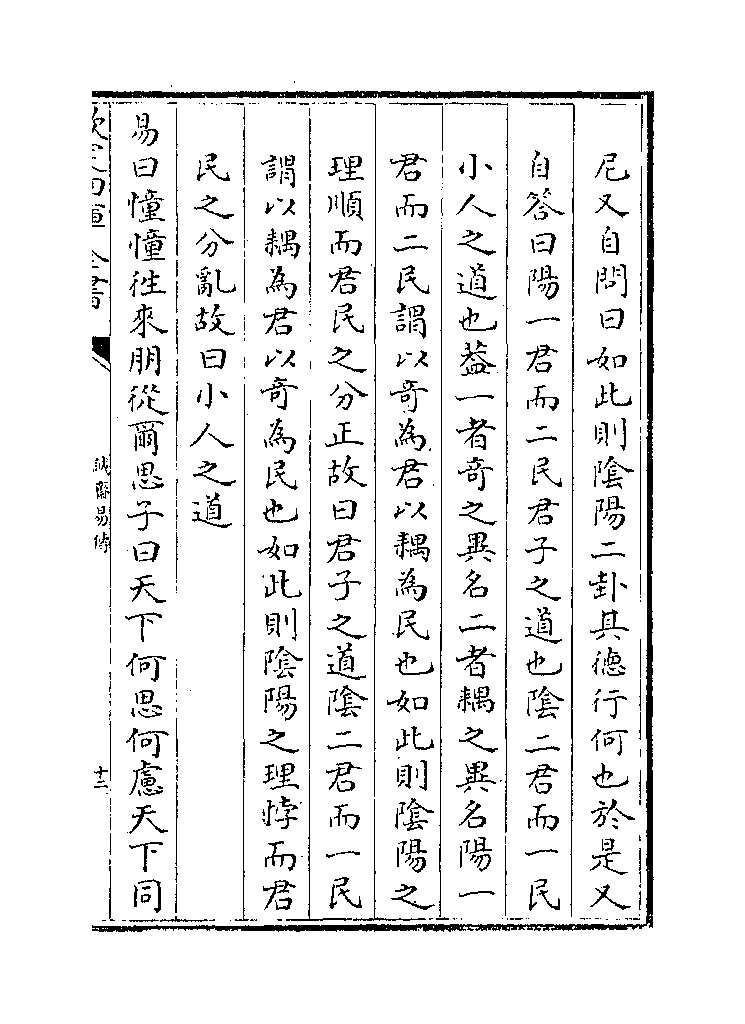 尼又自問曰如此則陰陽二卦其德行何也於是又
自答曰陽一君而二民君子之道也陰二君而一民
小人之道也葢一者奇之異名二者耦之異名陽一
君而二民謂以奇為君以耦為民也如此則陰陽之
理順而君民之分正故曰君子之道陰二君而一民
謂以耦為君以奇為民也如此則陰陽之理悖而君
民之分亂故曰小人之道
易曰憧憧徃來朋從爾思子曰天下何思何慮天下同
欽定四庫全書
誠齋易傳
十二